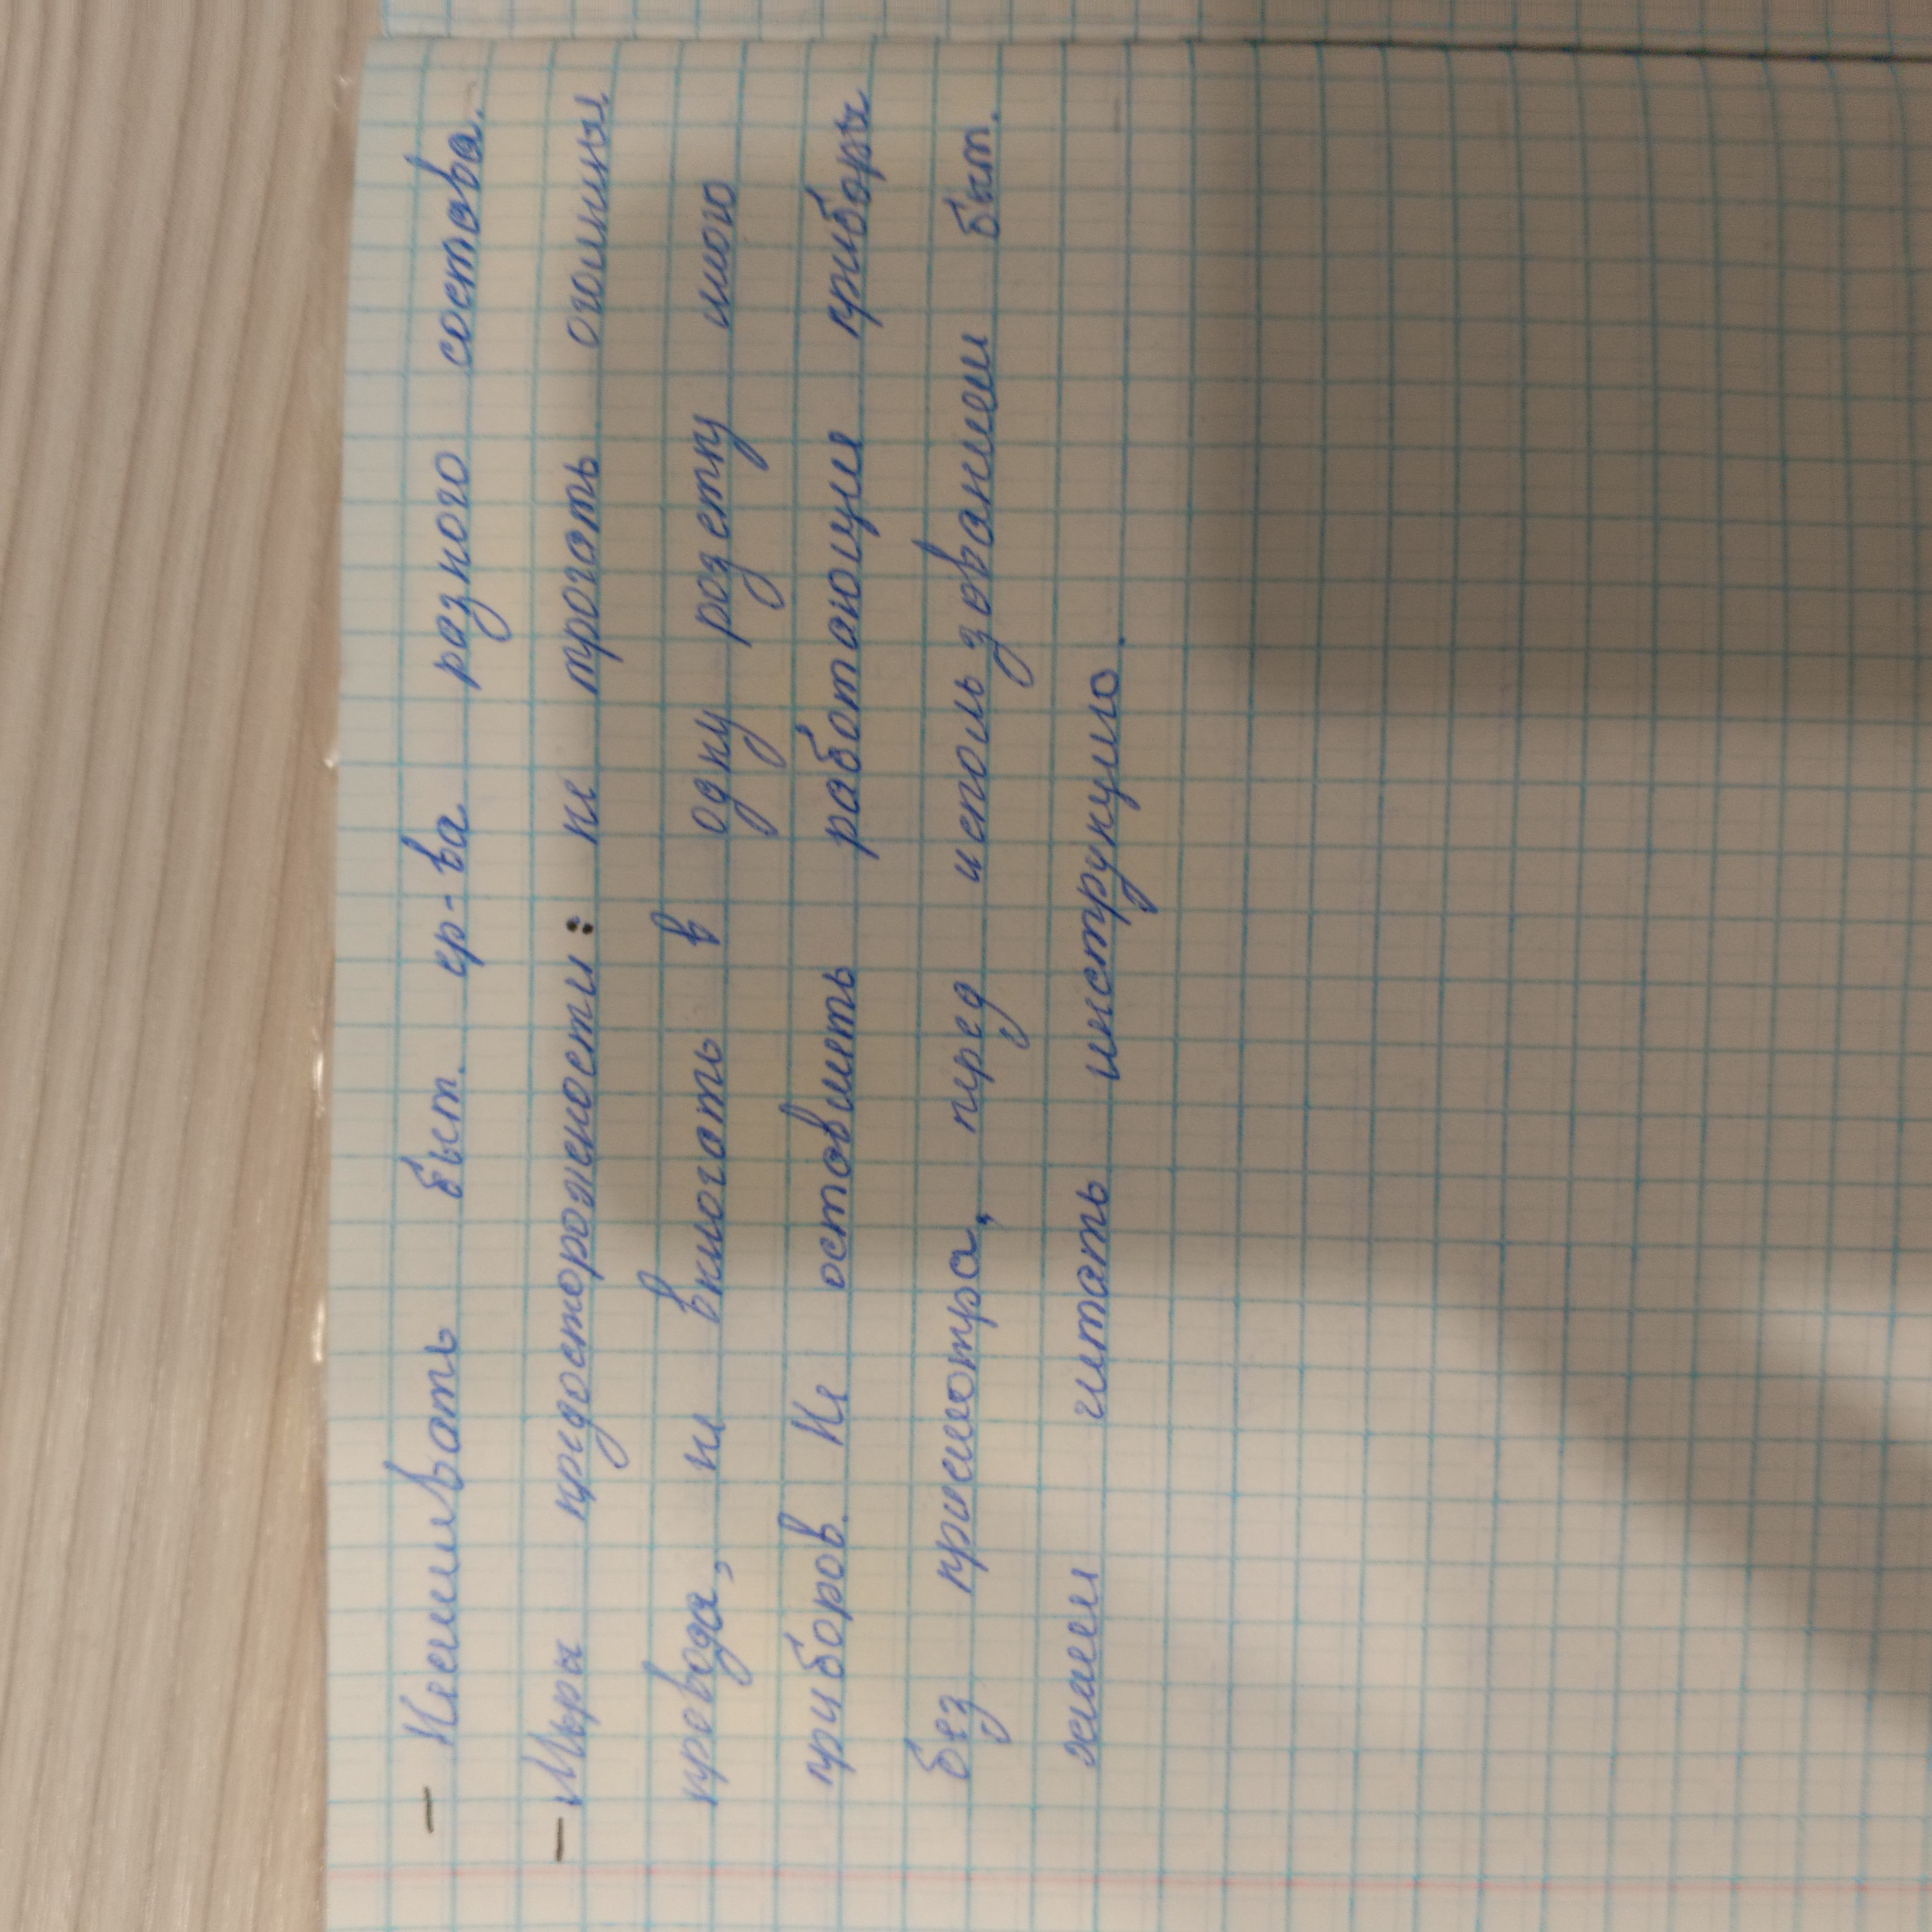 - Несмивать быт. ср-ва разного состава.
- Меры предосторожености: не трогать оголины
провода, не вклюгать в одну розетку много
приборов. Не оставлить работающие приборы
без присмотра, пред использованием быт.
хими читать инструкцию.